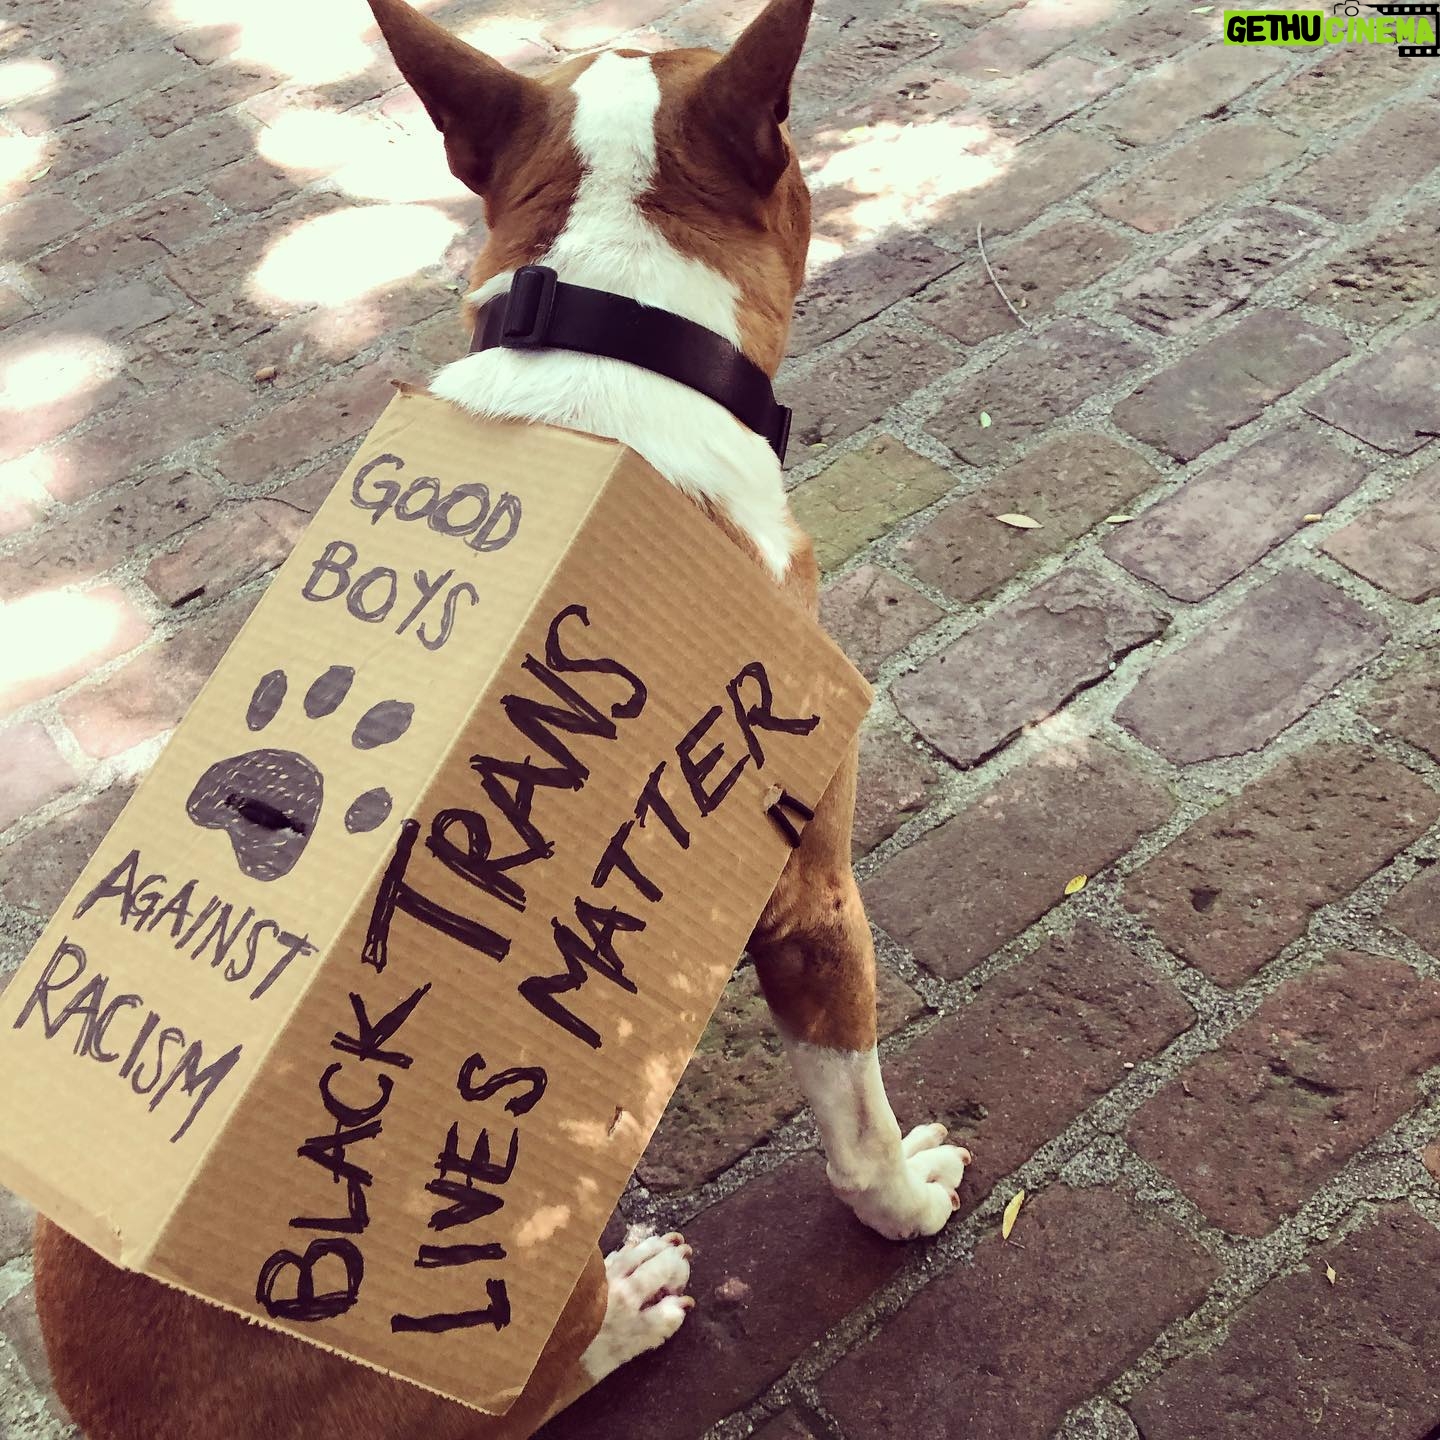 GETHUCINEMA
GOOD
BOYS
AGAINST
RACISM
BLACK TRANS
LIVES MATTER